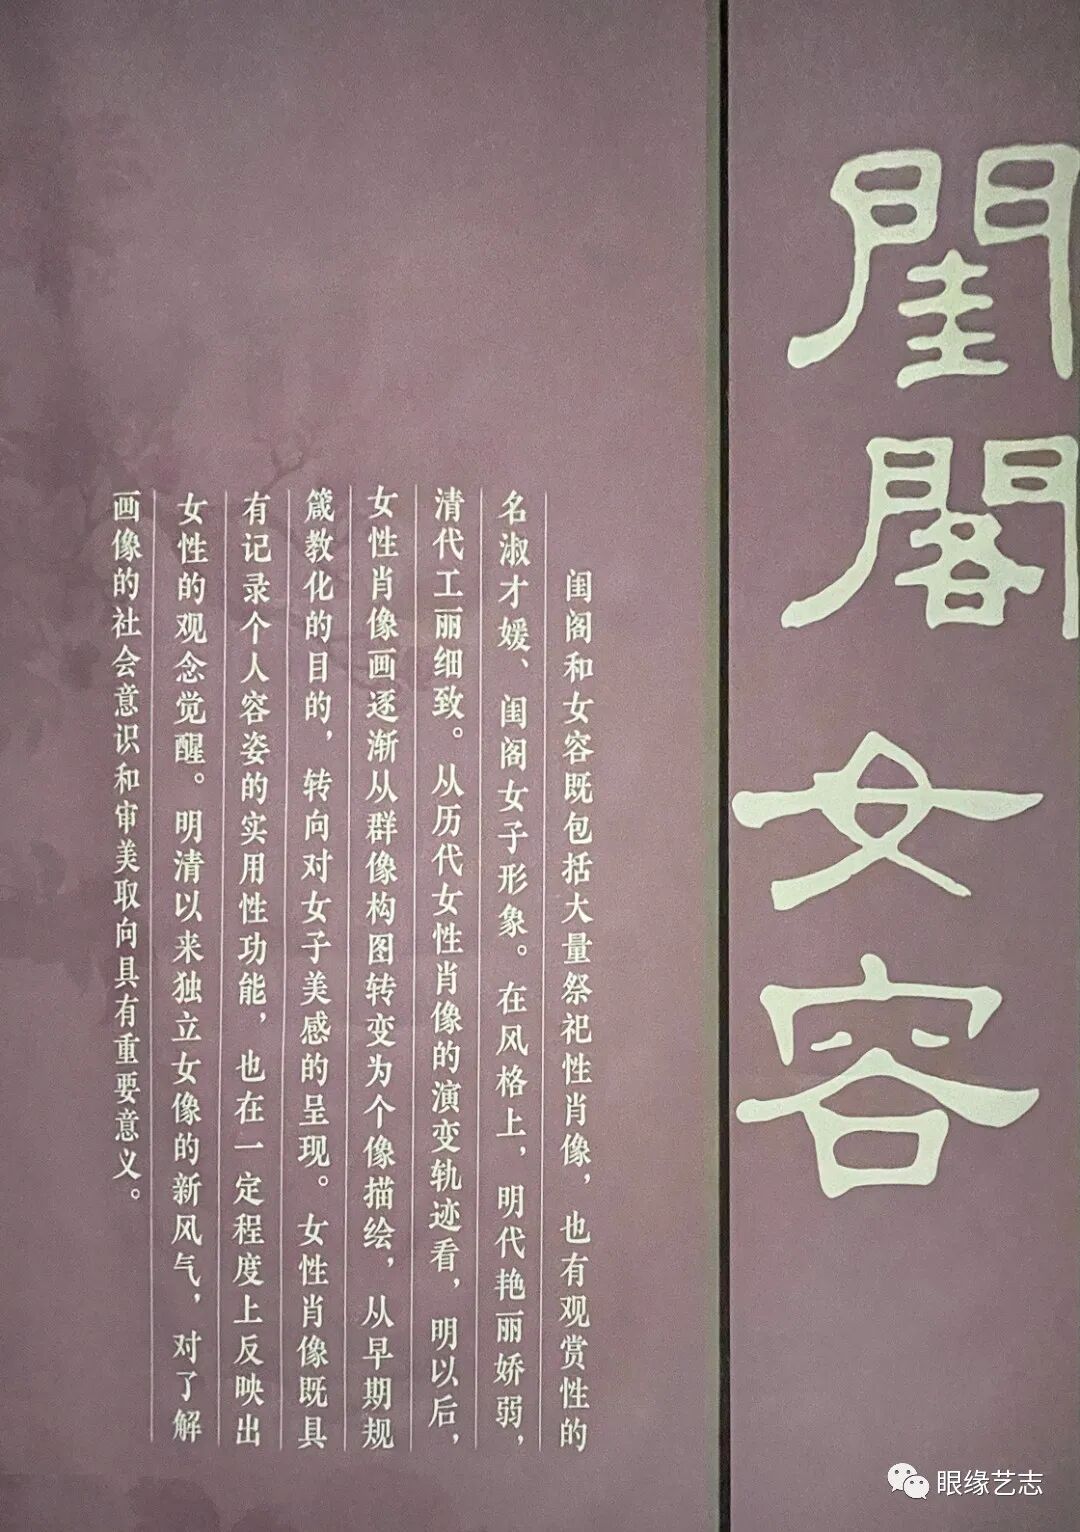 閨閣女容
闺阁和女容既包括大量祭祀性肖像，也有观赏性的
名淑才媛、闺阁女子形象。在风格上，明代艳丽娇弱，
清代工丽细致。从历代女性肖像的演变轨迹看，明以后，
女性肖像画逐渐从群像构图转变为个像描绘，从早期规
箴教化的目的，转向对女子美感的呈现。女性肖像既具
有记录个人容姿的实用性功能，也在一定程度上反映出
女性的观念觉醒。明清以来独立女像的新风气，对了解
画像的社会意识和审美取向具有重要意义。
眼缘艺志